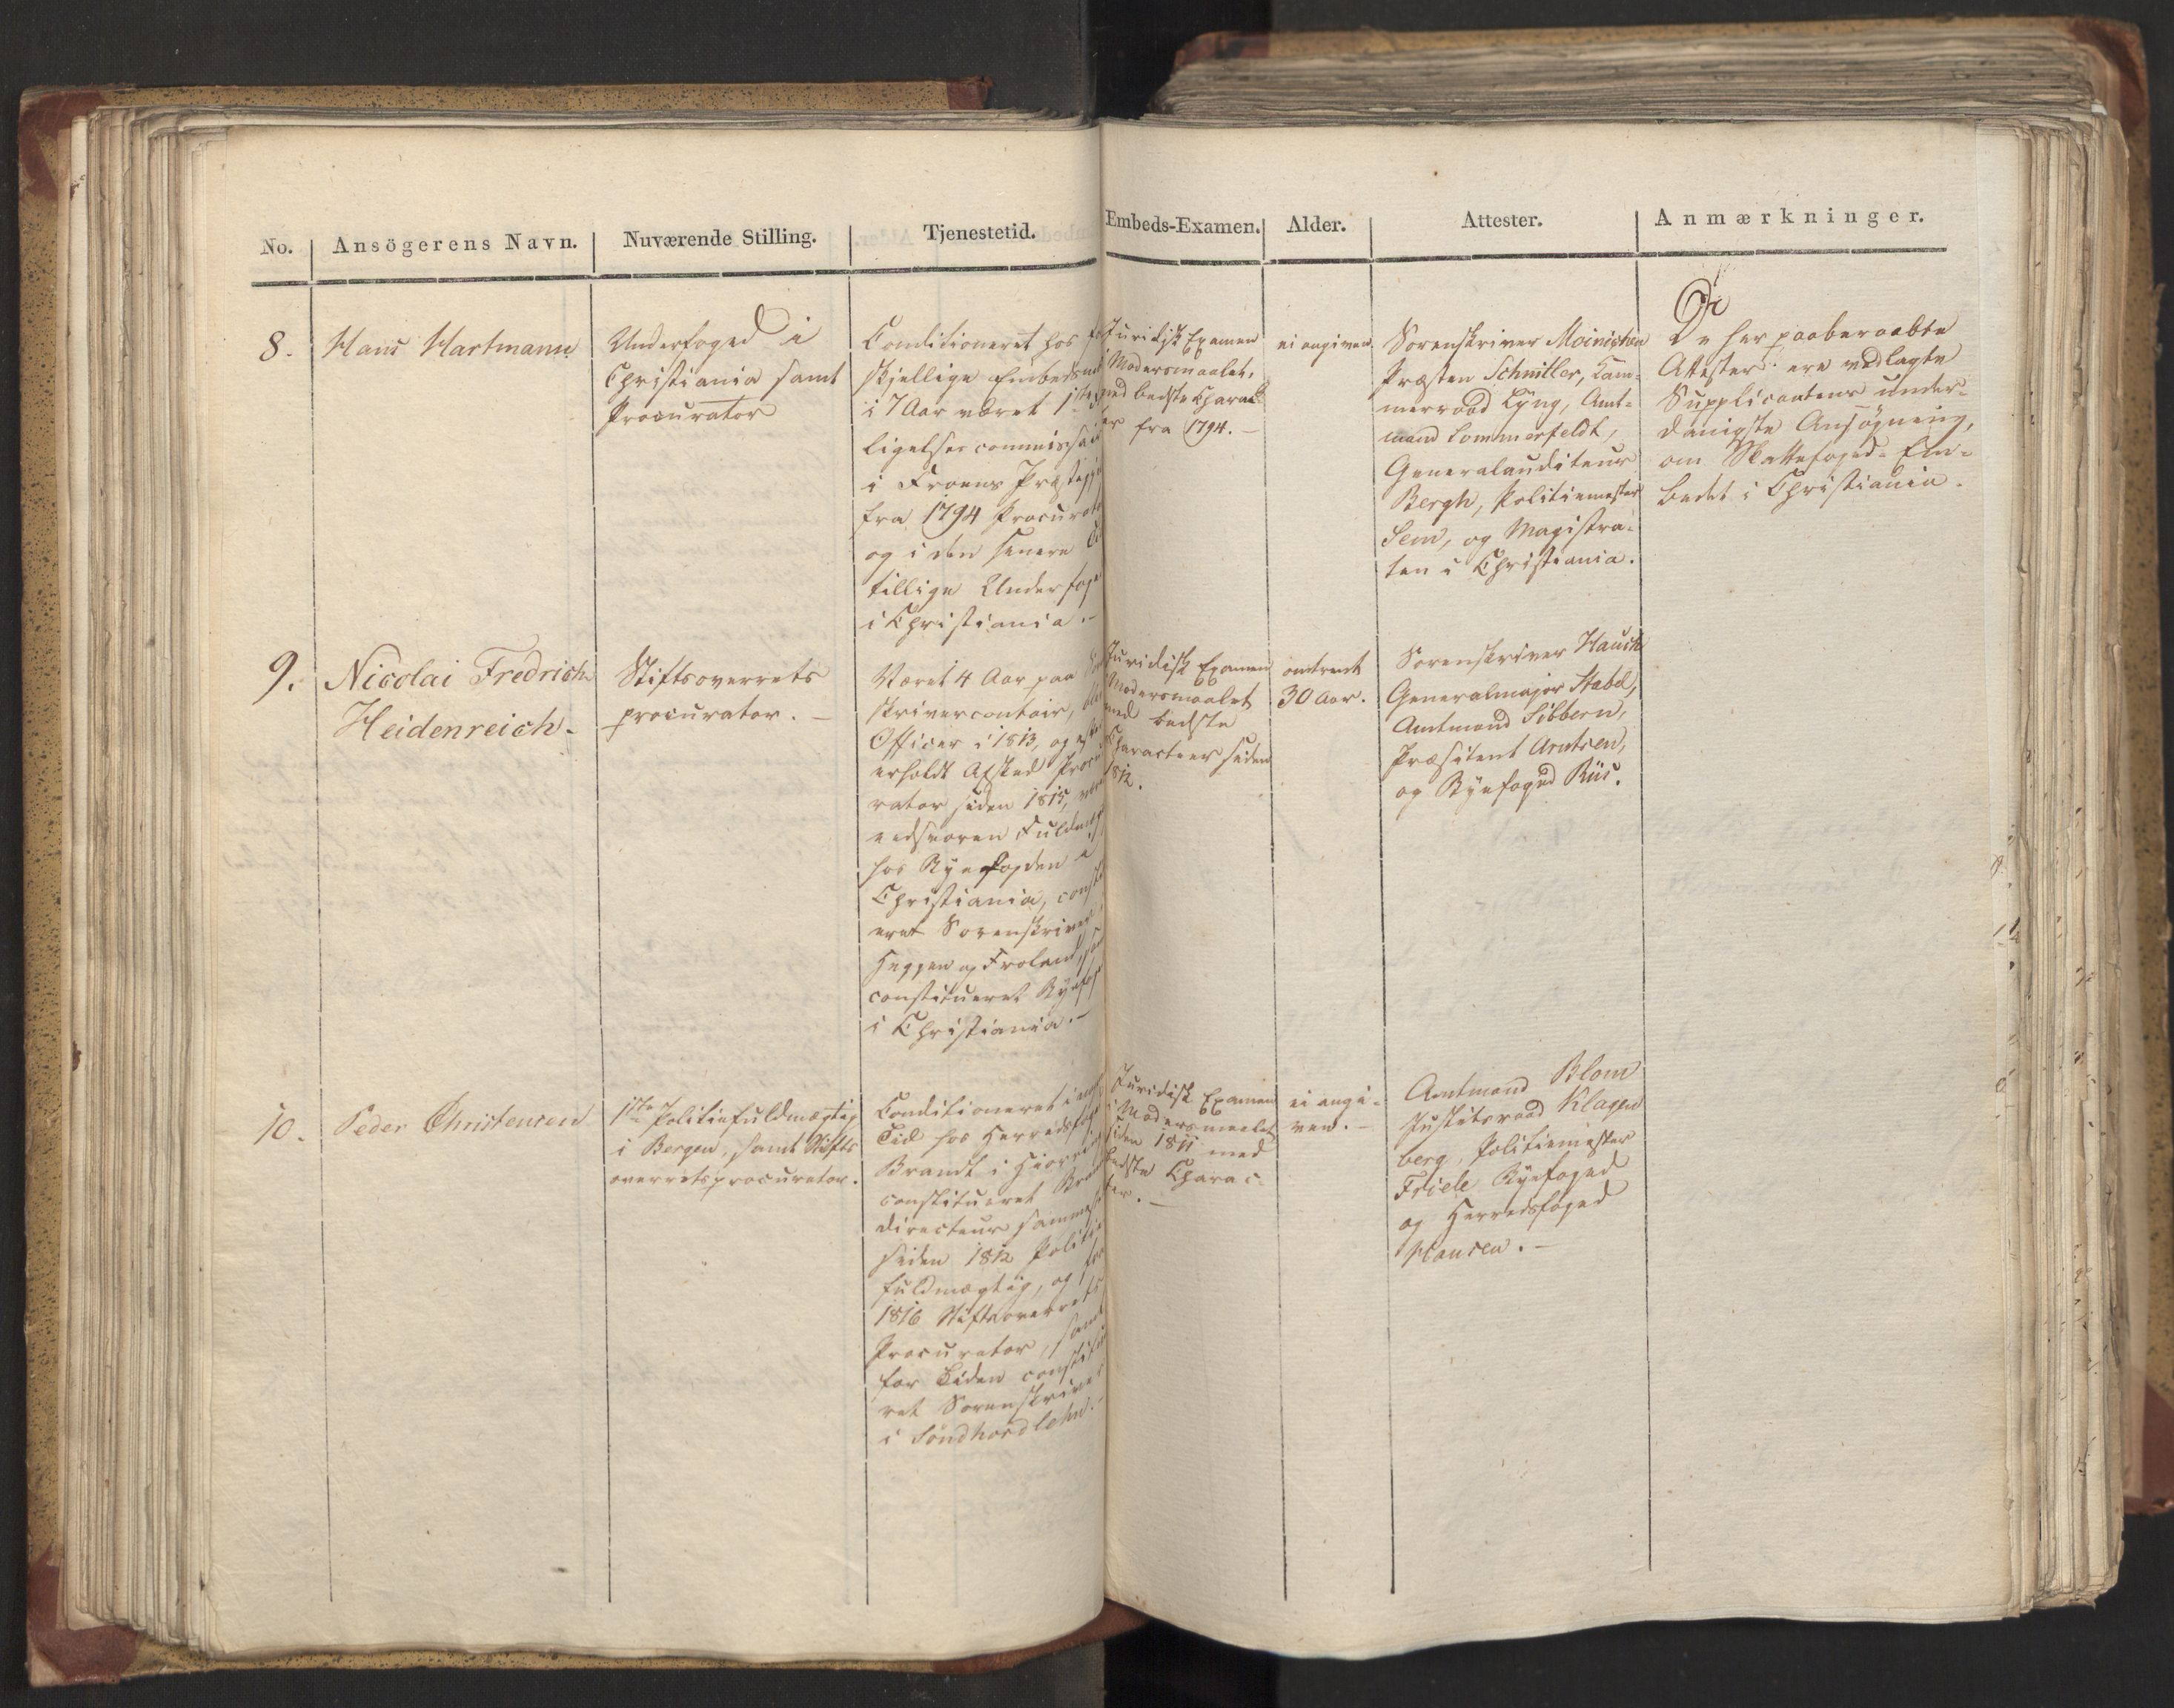 No. Ansögerens Navn. Nuværende Stilling. Tjenestetid. Embeds-Examen. Alder. Attester. Anmærkninger.
8.
Hans Hartmann
Underfoged i
Christiania samt
Procurator
Conditioneret hos for
skjellige Embedsm
i 7 Aar været 1ste
ligelsescommissair
i Froens Præstegje
fra 1794 Procurator
og i den senere
tillige Underfoge
i Christiania.-
Juridisk Examen
i Modersmaalet,
med bedste Charac
er fra 1794.-
ei angiven
Sorenskriver Moinichen
Præsten Schnitler, Kam-
merraad Lyng, Amt-
mand Sommerfeldt,
Generalauditeur
Bergh, Politiemester
Sem, og Magistra-
ten i Christiania.
De her paaberaabte
Attester ere vedlagte
Supplicantens under-
danigste Ansögning,
om Skattefoged-Em-
bedet i Christiania.
9.
Nicolai Fredrich
Heidenreich.
Stiftsoverrets
procurator.-
Været 4 Aar paa
skrivercontoir,
Officer i 1813, og
erholdt Afsked Procu
rator siden 1815,
edsvoren Fuldmæg
hos Byefogden i
Christiania, const
eret Sorenskriver
Heggen og Froland,
constitueret Byefog
i Christiania.-
Juridisk Examen
Modersmaalet
med bedste
Characteer siden
1812.
omtrent
30 Aar.
Sorenskriver Hauch
Generalmajor Stabel,
Amtmand Sibbern,
Præsident Arntzen,
og Byefoged Riis.
10.
Peder Christensen
1ste Politiefuldmægtig
i Bergen, samt Stifts
overretsprocurator.
Conditioneret i
Tid hos Herredsfog
Brandt i
constitueret Brand
directeur sammest
siden 1812 Politie
fuldmægtig, og fra
1816 Stiftsoverrets
Procurator, samt
for Tiden constitue
ret Sorenskriver
i Söndhordlehn.-
Juridisk Examen
i Modersmaalet
siden 1811 med
bedste Charac-
ter.-
ei angi-
ven.-
Amtmand Blom
Justitsraad Klagen
berg, Politiemester
Friele Byefoged
og Herredsfoged
Hansen.-